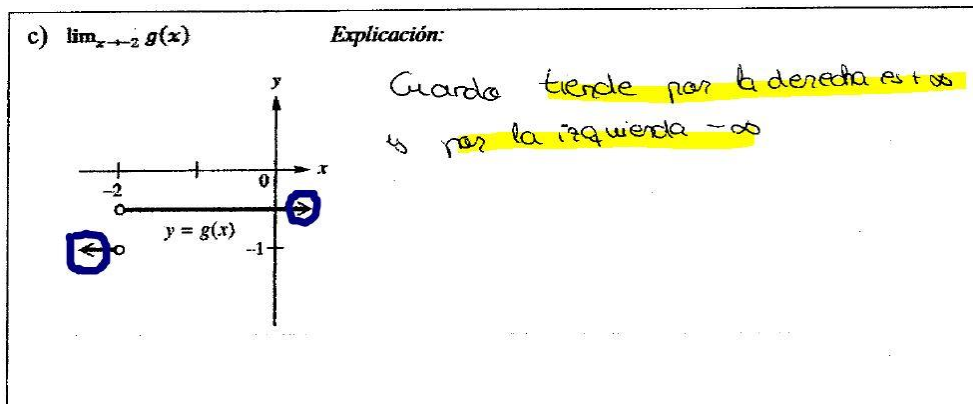 c) lim_{x→-2} g(x)
Explicación:
Cuando tiende por la derecha es +∞
y por la izquierda -∞
y
x
-2
0
y = g(x)
-1